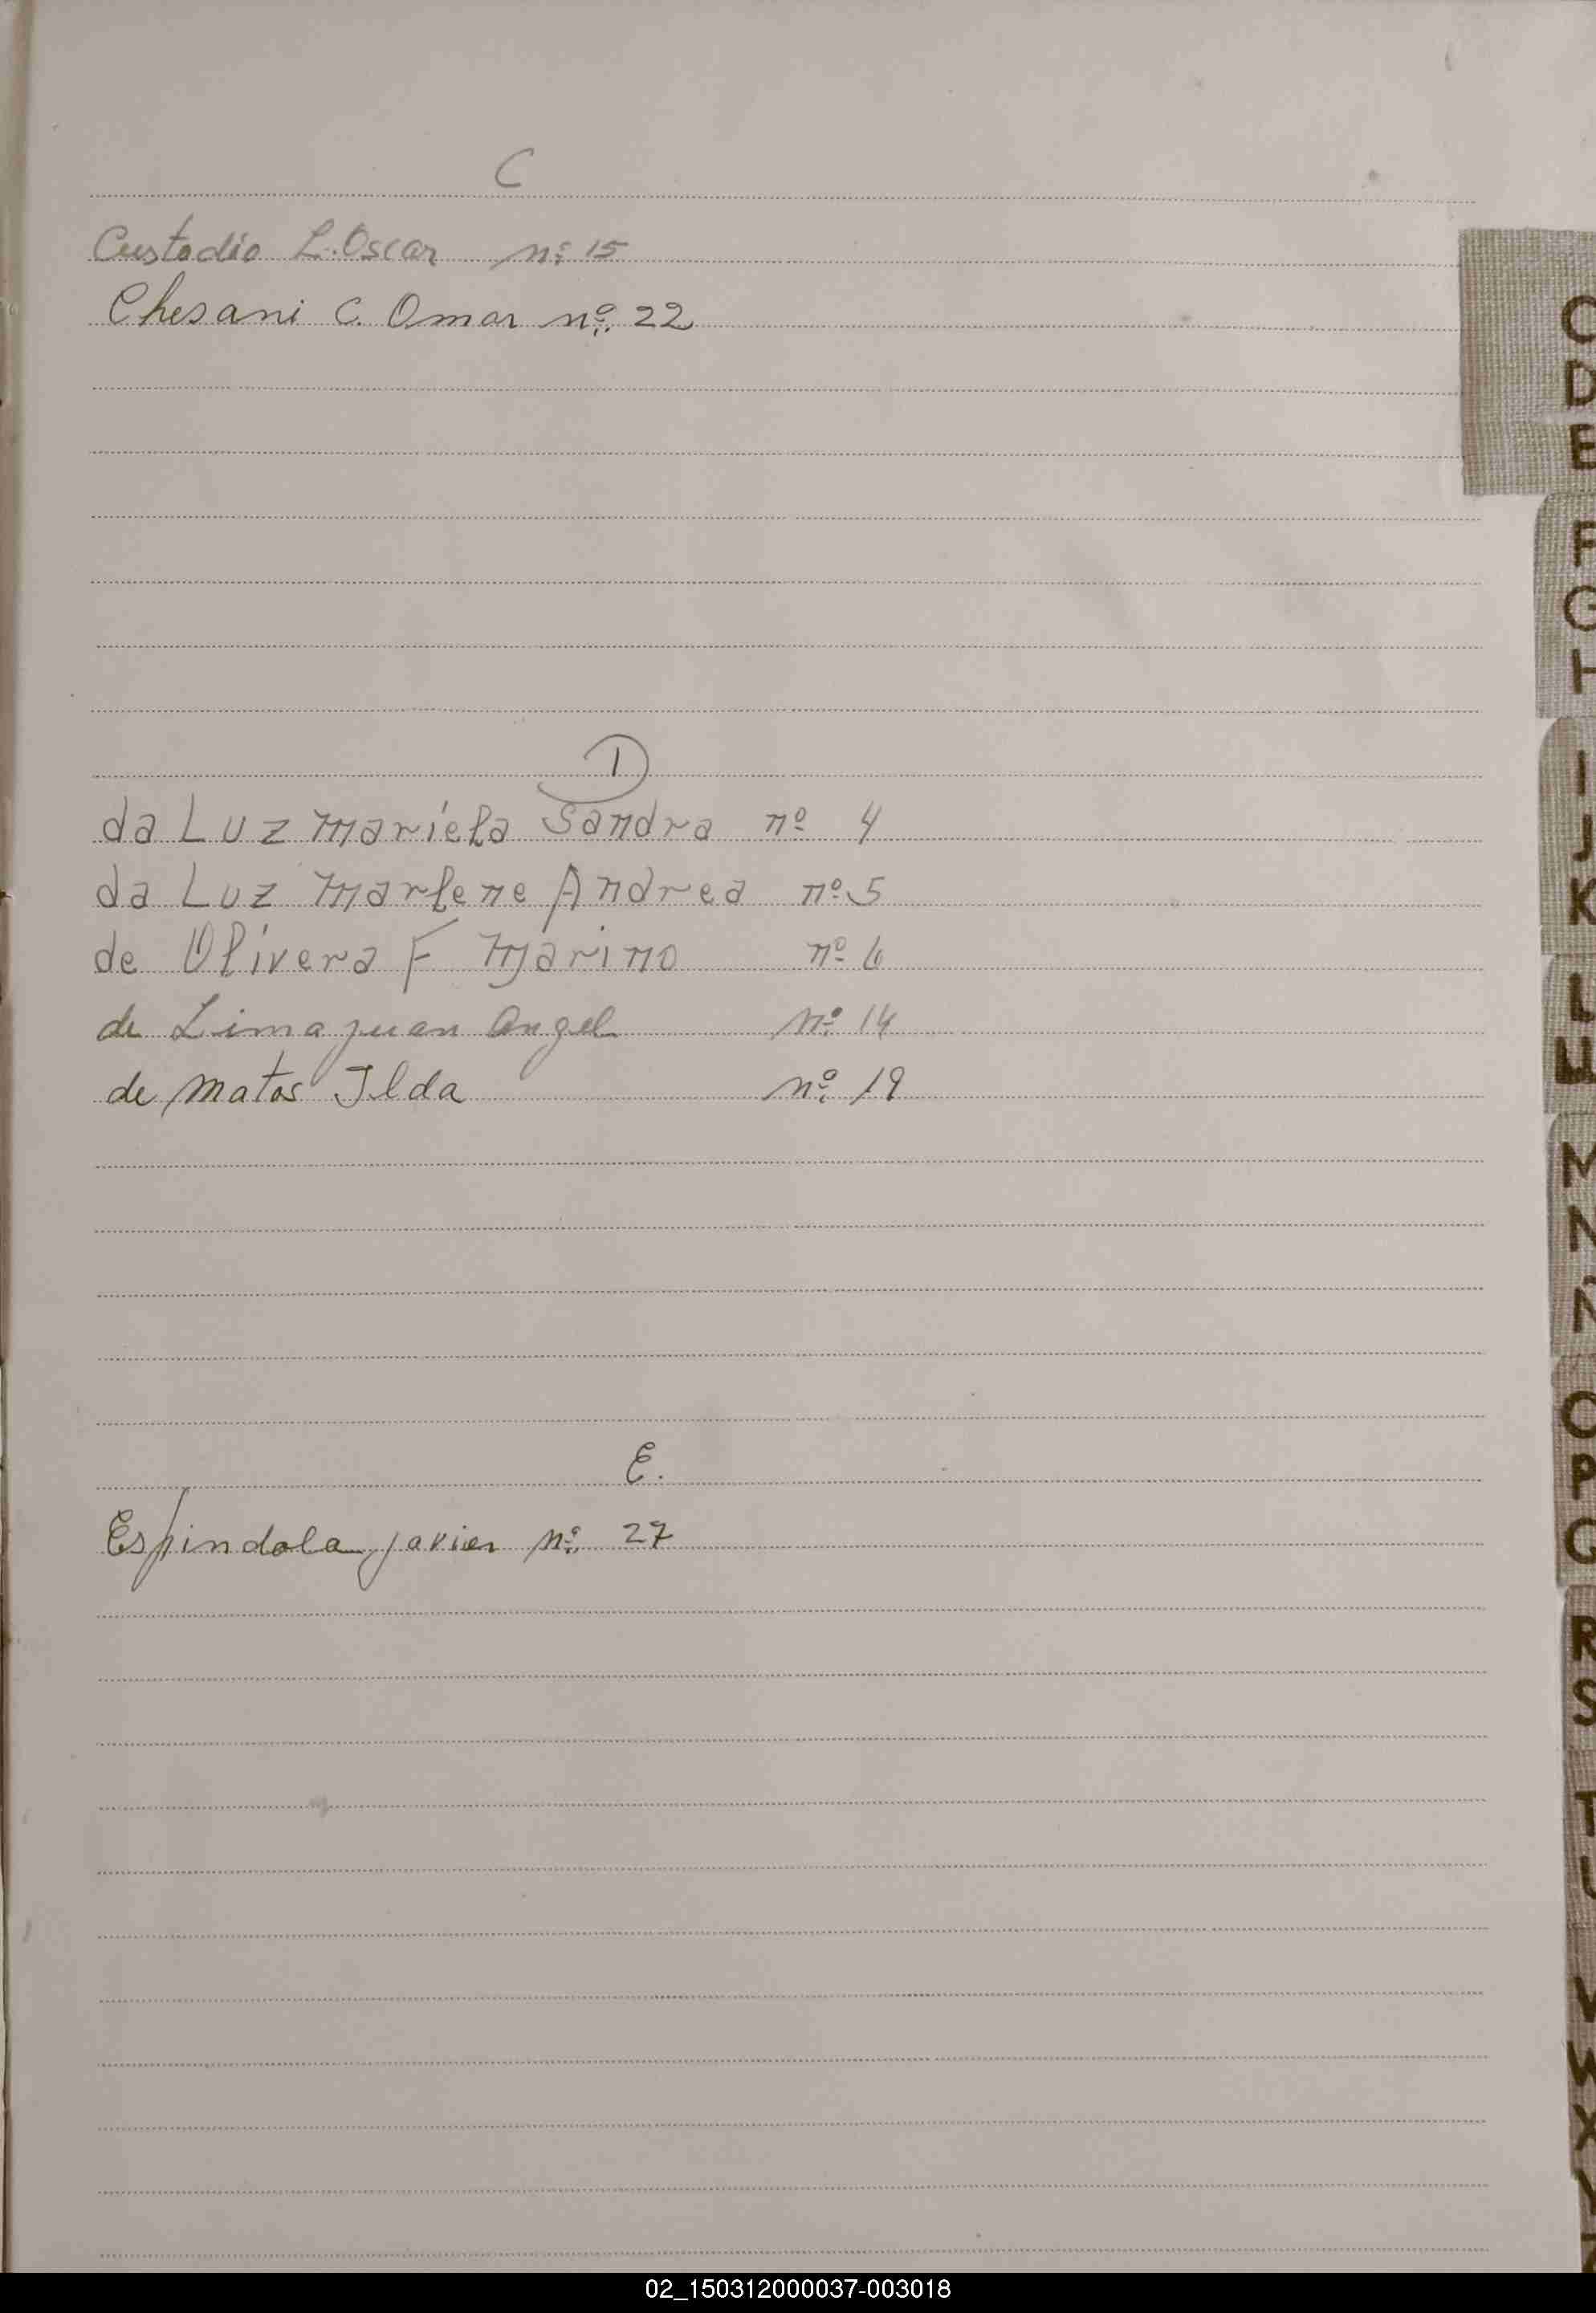 C
Custodio L. Oscar nº 15
Chesani C. Omar nº 22
D
da Luz Mariela Sandra nº 4
da Luz Marlene Andrea nº 5
de Olivera F Marino nº 6
de Lima Juan Angel nº 14
de Matos Ilda nº 19
E.
Espindola Javier nº 27
C
D
E
F
G
I
J
K
L
M
N
Ñ
O
P
R
S
T
U
V
W
X
02_150312000037-003018